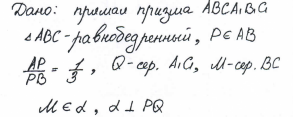 Дано: прямая призма ABCA₁B₁C₁
△ABC-равнобедренный, P∈AB
AP/PB = 1/3, Q-сер. A₁C₁, M-сер. BC
M∈α, α⊥PQ